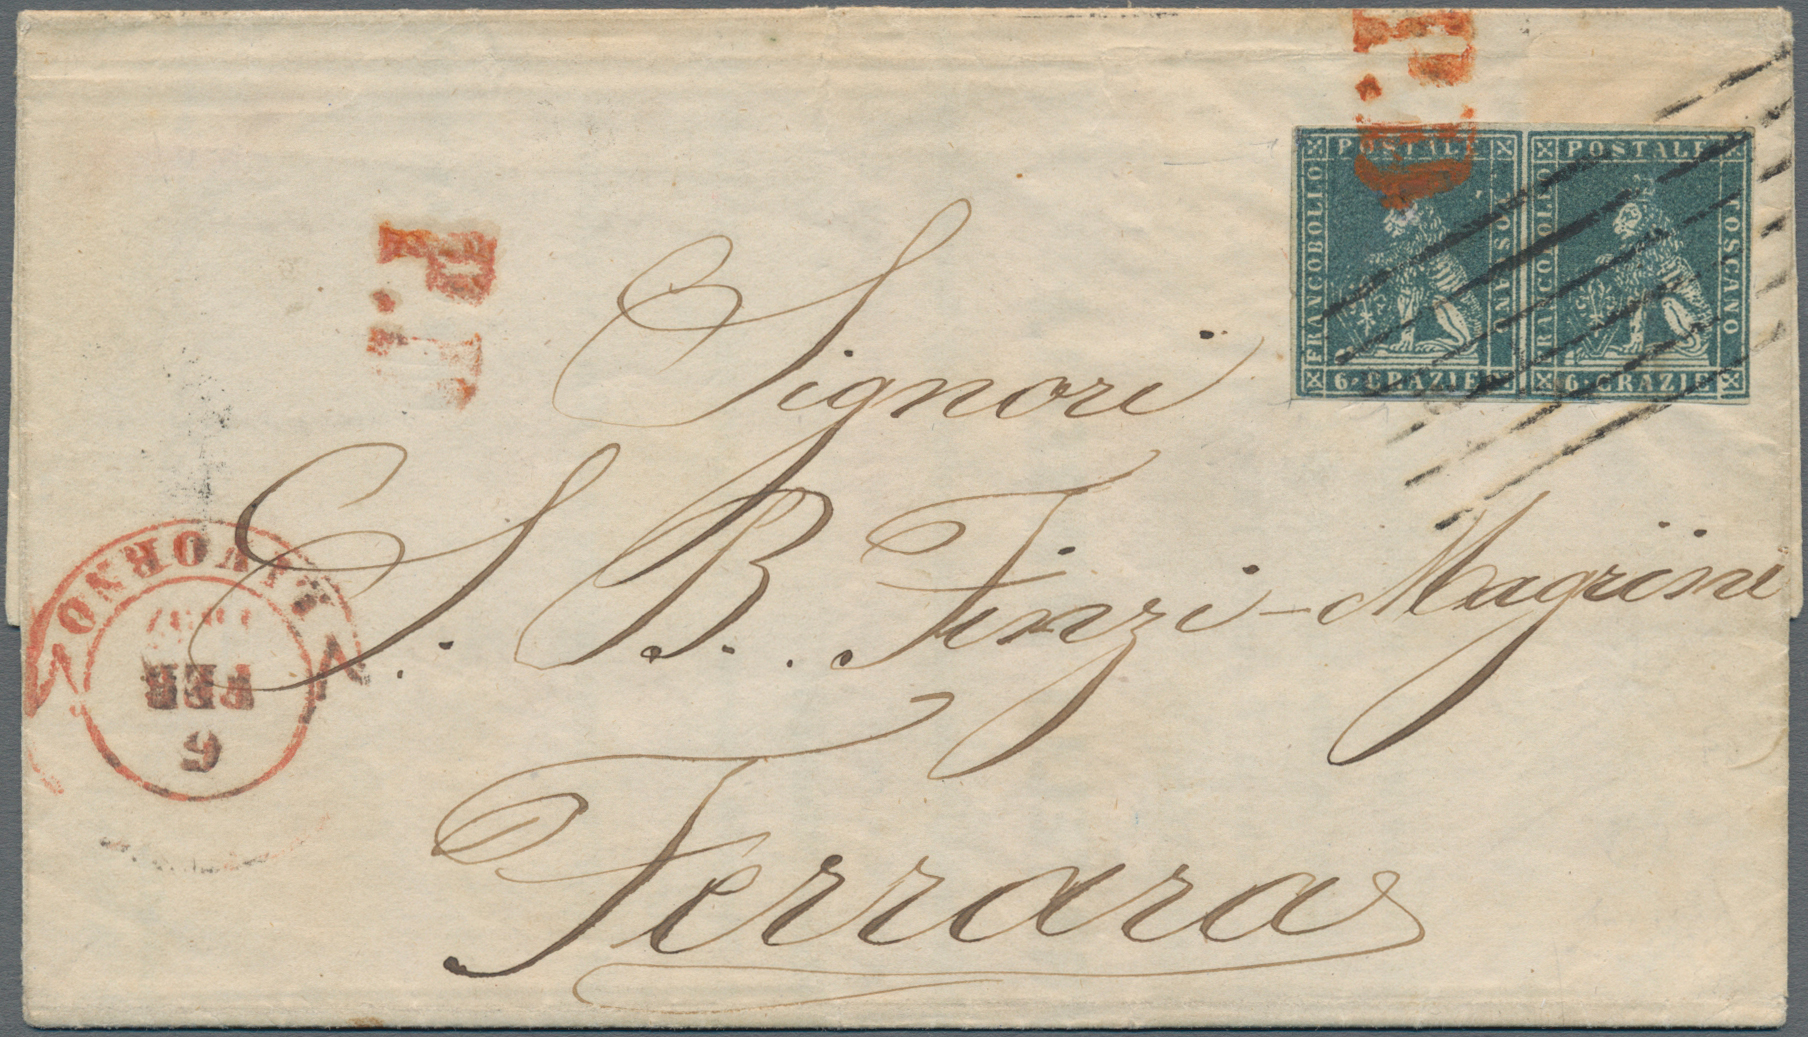 P.D.
POSTALE
FRANCOBOLLO
TOSCANO
6. CRAZIE
POSTALE
FRANCOBOLLO
TOSCANO
6. CRAZIE
P.D.
Signori
S. B. Finzi-Magrini
Ferrara
LIVORNO
FEB
6